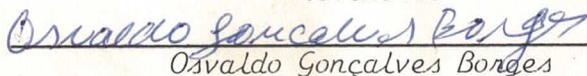 Osvaldo Gonçalves Borges
Osvaldo Gonçalves Borges